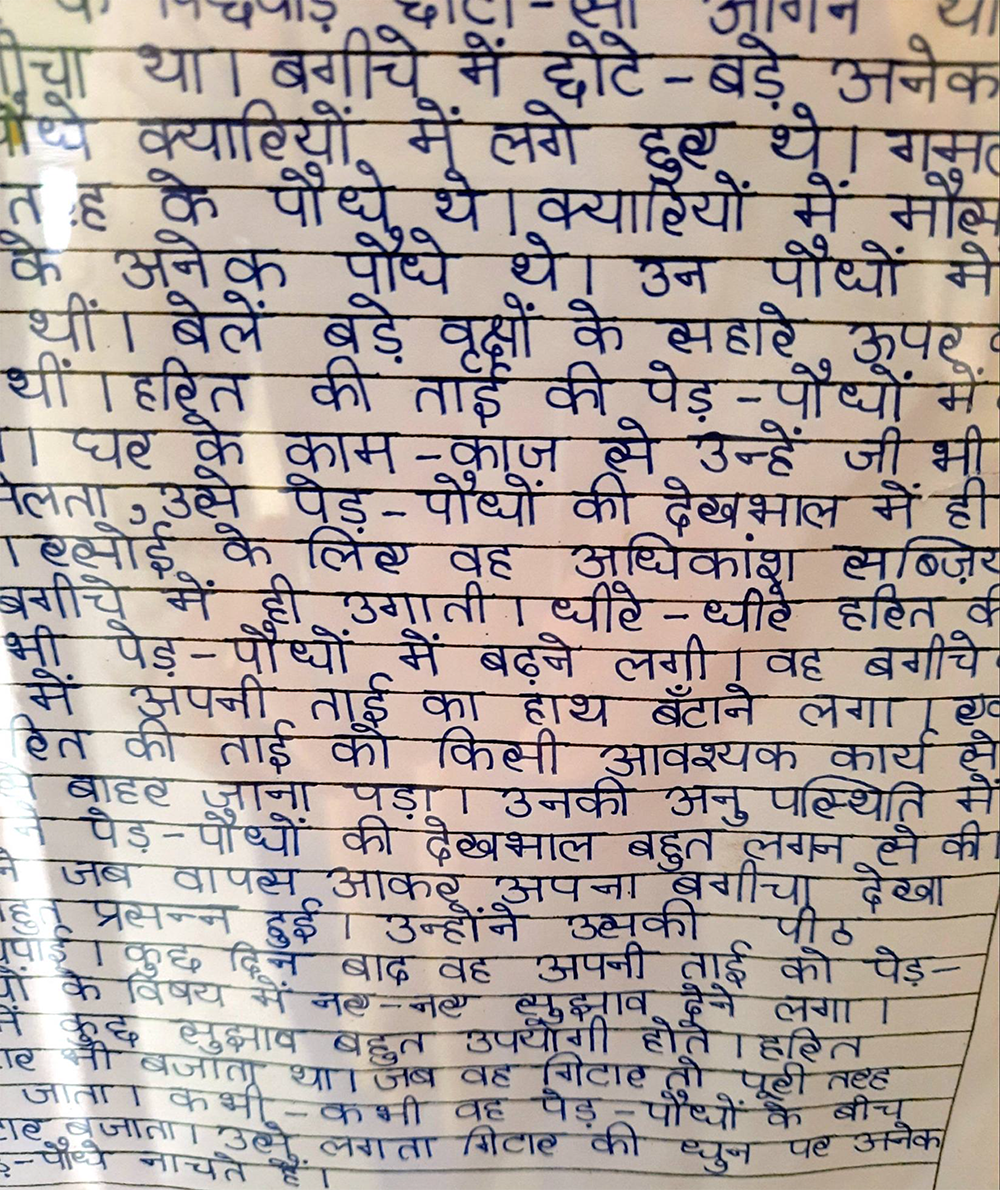 के पिछवाड़े छोटा-सा आँगन था
ीचा था। बगीचे में छोटे-बड़े अनेक
पौधे क्यारियों में लगे हुए थे। गमल
त ह के पौधे थे। क्यारियों में मौस
के अनेक पौधे थे। उन पौधों में
थीं। बेलें बड़े वृक्षों के सहारे ऊपर
थीं। हरित की ताई की पेड़-पौधों में
। घर के काम-काज से उन्हें जी भी
मिलता, उसे पेड़-पौधों की देखभाल में ही
। रसोई के लिए वह अधिकांश सब्ज़िय
बगीचे में ही उगाती। धीरे-धीरे हरित की
भी पेड़-पौधों में बढ़ने लगी। वह बगीचे
में अपनी ताई का हाथ बँटाने लगा। एक
रित की ताई को किसी आवश्यक कार्य से
बाहर जाना पड़ा। उनकी अनुपस्थिति में
ने पेड़-पौधों की देखभाल बहुत लगन से की
ने जब वापस आकर अपना बगीचा देखा
हुत प्रसन्न हुई। उन्होंने उसकी पीठ
थपाई। कुछ दिन बाद वह अपनी ताई को पेड़-
धों के विषय में नए-नए सुझाव देने लगा।
में कुछ सुझाव बहुत उपयोगी होते। हरित
टार भी बजाता था। जब वह गिटार तो पूरी तरह
जाता। कभी-कभी वह पेड़-पौधों के बीच
टार बजाता। उसे लगता गिटार की धुन पर अनेक
ड़-पौधे नाचते हैं।